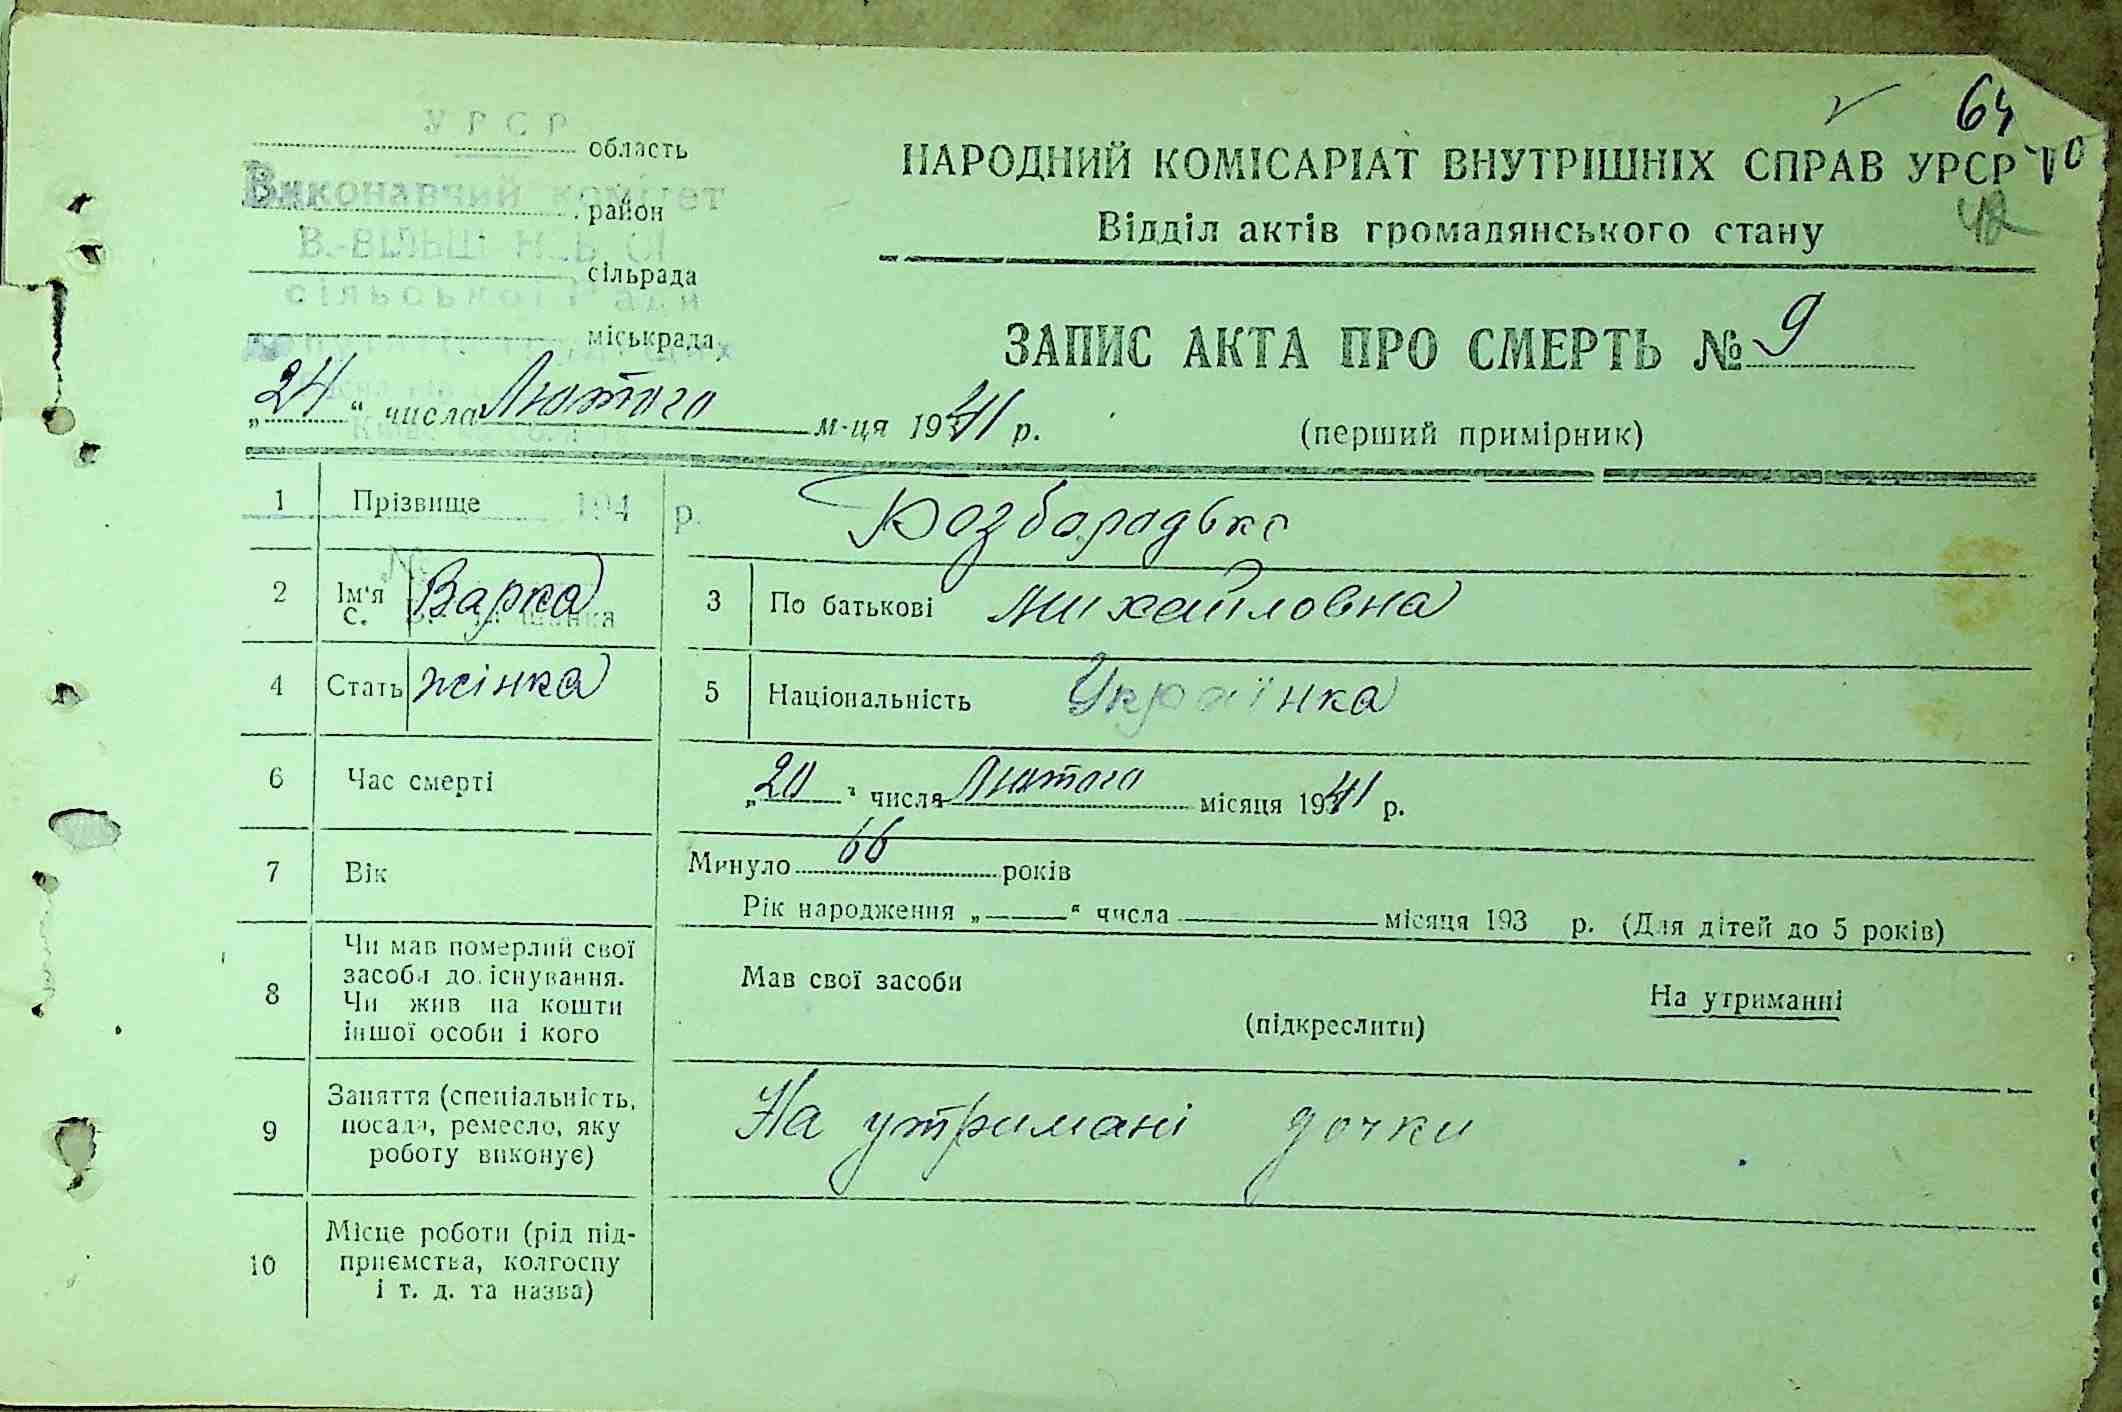 64
УРСР
область
НАРОДНИЙ КОМІСАРІАТ ВНУТРІШНІХ СПРАВ УРСР
Виконавчий комітет
район
Відділ актів громадянського стану
42
сільрада
сільської Ради
міськрада
ЗАПИС АКТА ПРО СМЕРТЬ № 9
„24“ числа Лютого м-ця 1941 р.
(перший примірник)
1 Прізвище Розбарадько
194 р.
2 Ім'я Варка 3 По батькові Михайловна
с.
4 Стать жінка 5 Національність Українка
6 Час смерті „20“ числа Лютого місяця 1941 р.
7 Вік Минуло 66 років
Рік народження „——“ числа —— місяця 193 р. (Для дітей до 5 років)
8 Чи мав померлий свої
засоби до існування.
Чи жив на кошти
іншої особи і кого
Мав свої засоби
(підкреслити)
На утриманні
9 Заняття (спеціальність,
посада, ремесло, яку
роботу виконує)
На утримані дочки
10 Місце роботи (рід під-
приємства, колгоспу
і т. д. та назва)